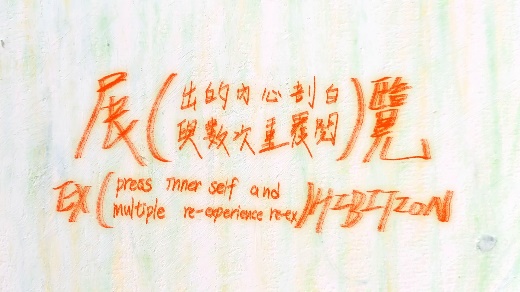 展(出的內心剖白
與數次重覆閱)覽
EX(press Inner self and
multiple re-experience re-ex)HIBITION